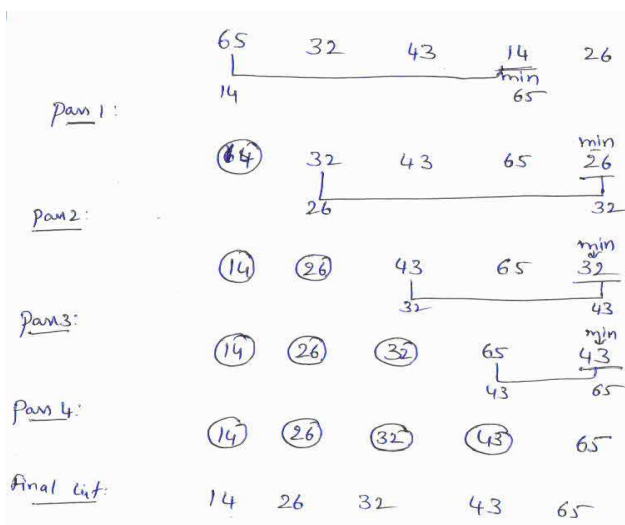 65 32 43 14 26
min
14 65
Pass 1:
min
14 32 43 65 26
26 32
Pass 2:
min
14 26 43 65 32
32 43
Pass 3:
min
14 26 32 65 43
43 65
Pass 4:
14 26 32 43 65
Final list:
14 26 32 43 65